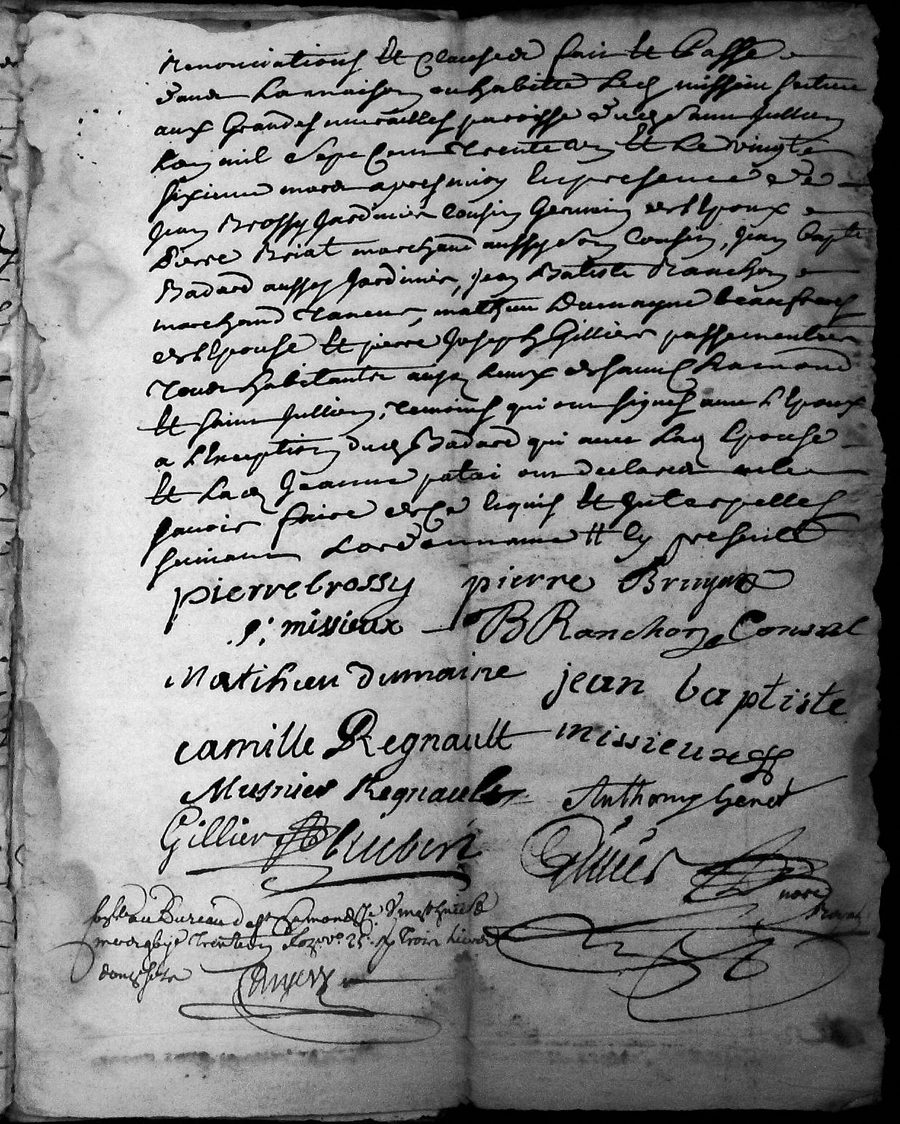 Renonciations et Clauses fait et Passé
dans La maison ou habitte Led missieu scittue
aux Grandes murailles paroisse dud Saint Jullien
L'an mil Sept Cent Trente un et Le vingt
sixieme mars apres midy En presence de
Jean Brossy Jardinier Cousin Germain de l'Epoux
Pierre Briat marchand aussy son Cousin, Jean Bapte
Badard aussy Jardinier, Jean Batiste Ranchon
marchand Taneur, mathieu Dumayne beaufrere
de l'Epouse et pierre Joseph Gillier passementier
Tous habitants aud Lieux de Saint Chamond
et Saint Jullien, Temoins qui ont signés avec L'Epoux
a L'Exception dud Badard qui avec Lad Epouse
et Lad Jeanne patai ont declaré ne le
scavoir faire de ce Enquis et Interpellés
suivant L'ordonnance
pierre brossy pierre Bruyas
p: missieux B Ranchon Consul
Mathieu dumaine jean baptiste
camille Regnault missieux
Musnier Regnault Anthoine Genet
Gillier hubert
not Royal
au Bureau de St Chamond Le Vingt huit
mil sept cent Trente un Trois Livres
douze sols